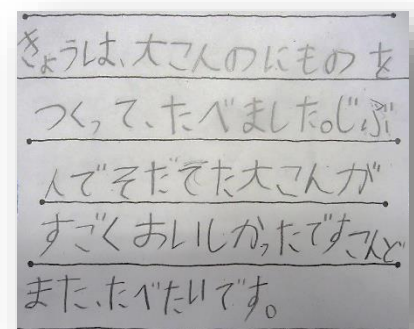 きょうは、大こんのにものを
つくって、たべました。じぶ
人でそだてた大こんが
すごくおいしかったですこんど
また、たべたいです。